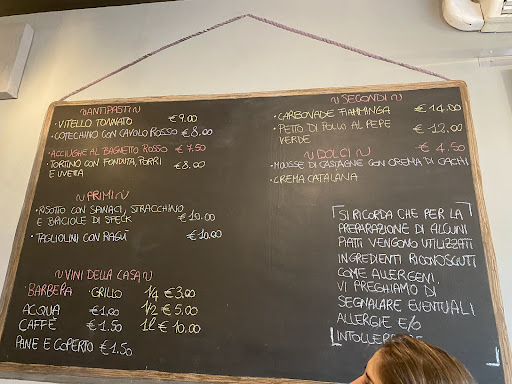 ~ANTIPASTI~
·VITELLO TONNATO €9.00
·COTECHINO CON CAVOLO ROSSO €8.00
·ACCIUGHE AL BAGNETTO ROSSO €7.50
·TORTINO CON FONDUTA, PORRI
E UVETTA €8.00
~PRIMI~
·RISOTTO CON SPINACI, STRACCHINO
E BRICIOLE DI SPECK €10.00
·TAGLIOLINI CON RAGÙ €10.00
~VINI DELLA CASA~
·BARBERA ·GRILLO 1/4 €3.00
ACQUA €1.00 1/2 €5.00
CAFFÈ €1.50 1l €10.00
PANE E COPERTO €1.50
~SECONDI~
·CARBONADE FIAMMINGA €14.00
·PETTO DI POLLO AL PEPE
VERDE €12.00
~DOLCI~ €4.50
·MOUSSE DI CASTAGNE CON CREMA DI CACHI
·CREMA CATALANA
SI RICORDA CHE PER LA
PREPARAZIONE DI ALCUNI
PIATTI VENGONO UTILIZZATI
INGREDIENTI RICONOSCIUTI
COME ALLERGENI.
VI PREGHIAMO DI
SEGNALARE EVENTUALI
ALLERGIE E/O